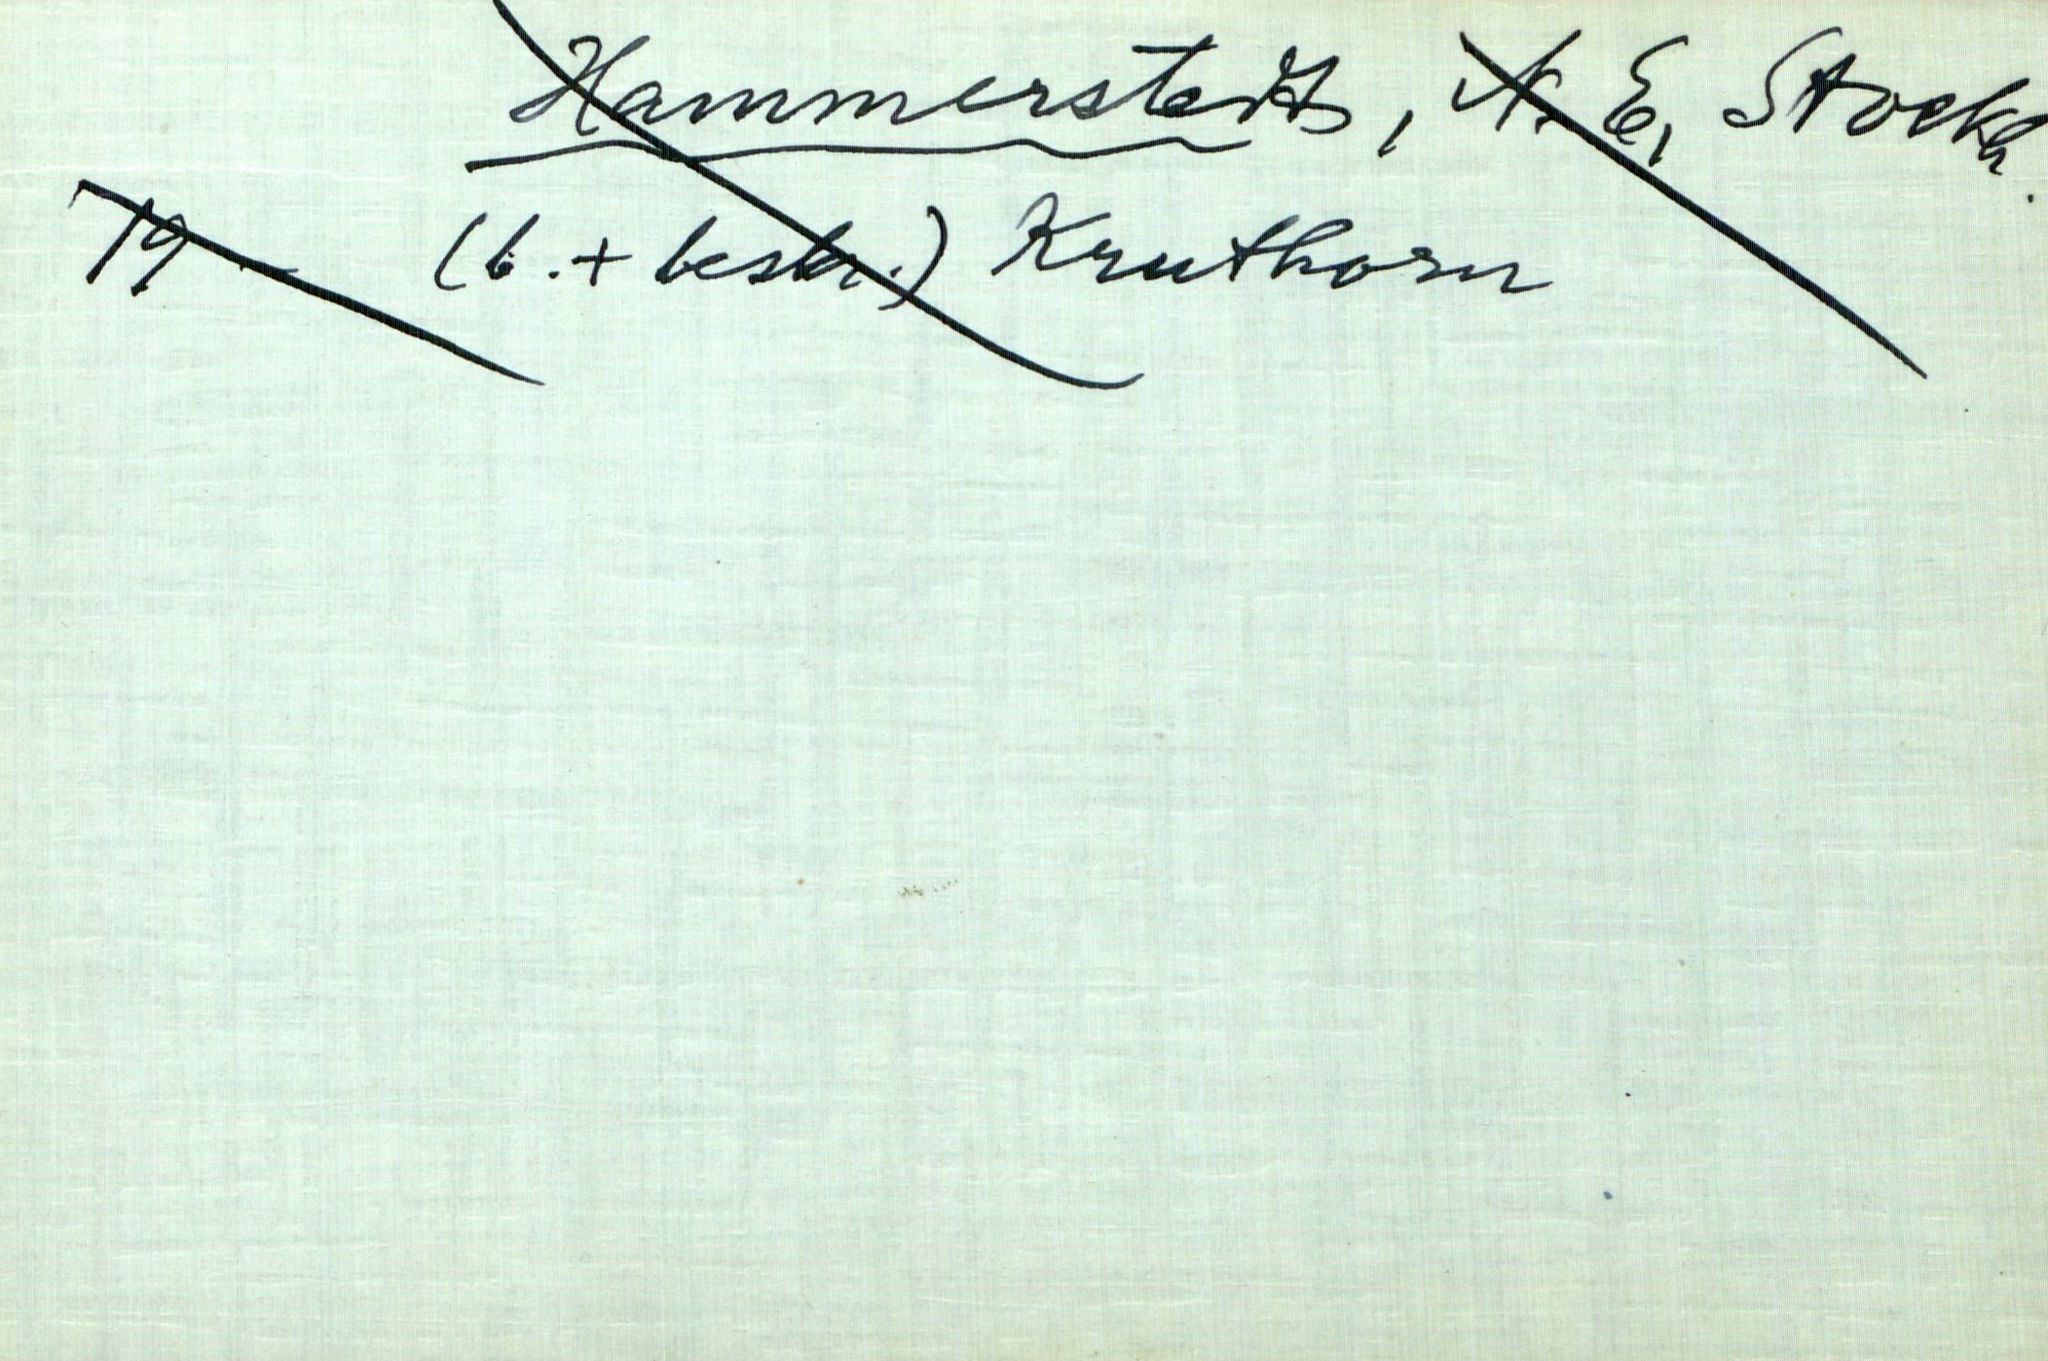 Hammerstedt, N. E, Stockh.
19 - (b. + beskr.) Kruthorn